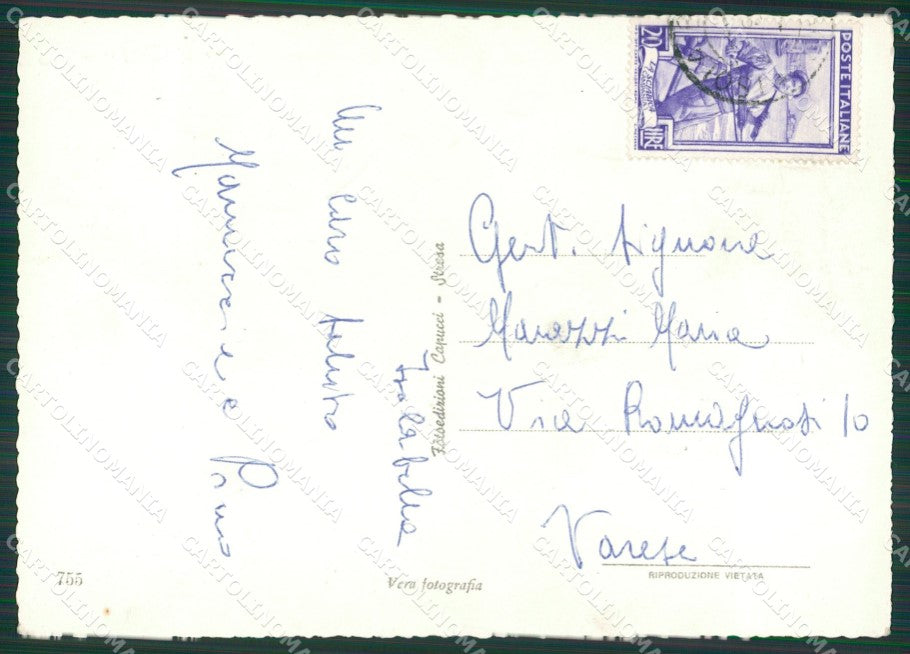 POSTE ITALIANE
20
LIRE
Un caro saluto
Isola bella
e Pino
Fotoedizioni Capucci - Stresa
Gent. Signora
Marazzi Maria
Via Romagnosi 10
Varese
RIPRODUZIONE VIETATA
755
Vera fotografia
CARTOLINOMANIA